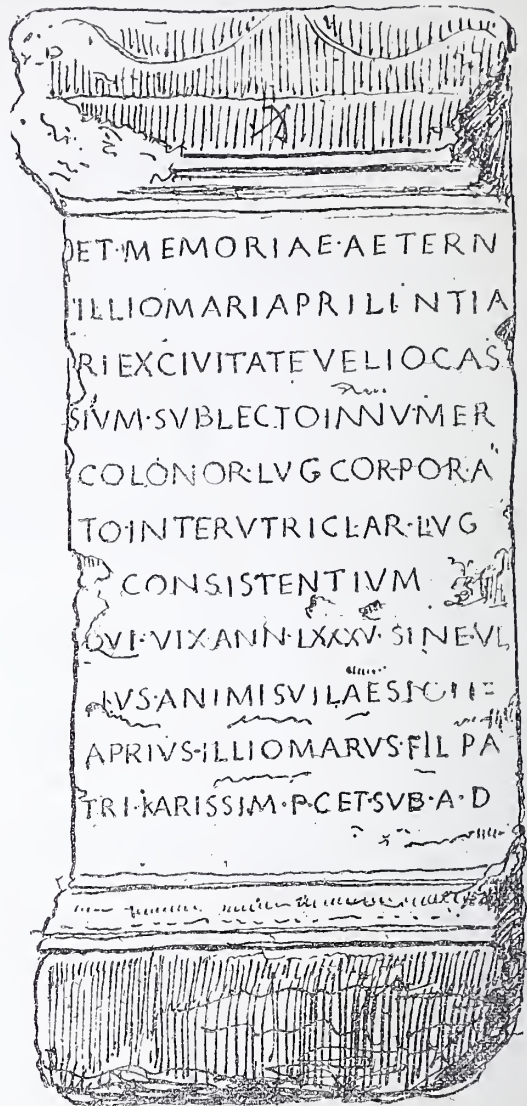 ET·MEMORIAE·AETERN
ILLIOMARIAPRILINTIA
RIEXCIVITATEVELIOCAS
SIVM·SVBLECTOINNVMER
COLONOR·LVGCORPOR·A
TO·INTERVTRICLAR·LVG
CONSISTENTIVM
QVI·VIX·ANN·LXXXV·SINE·VL
IVS·ANIMISVILAESI
APRIVS·ILLIOMARVS·FIL PA
TRI·KARISSIM·P·CET·SVB·A·D